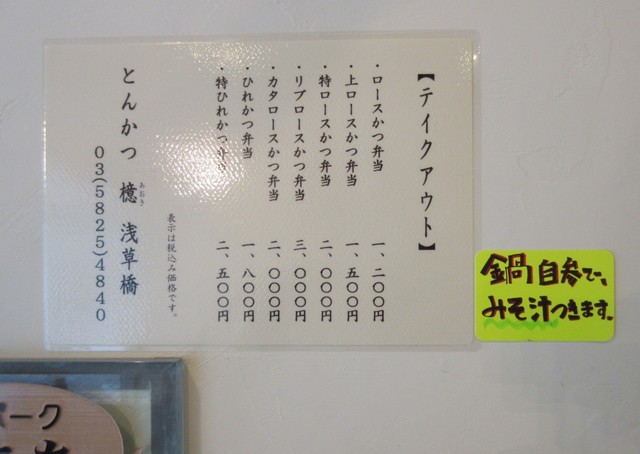 【テイクアウト】
・ロースかつ弁当 一、二〇〇円
・上ロースかつ弁当 一、五〇〇円
・特ロースかつ弁当 二、〇〇〇円
・リブロースかつ弁当 三、〇〇〇円
・カタロースかつ弁当 二、〇〇〇円
・ひれかつ弁当 一、八〇〇円
・特ひれかつ弁当 二、五〇〇円
表示は税込み価格です。
とんかつ 檍 浅草橋
あおき
03(5825)4840
鍋自参で、
みそ汁つきます。
ポーク